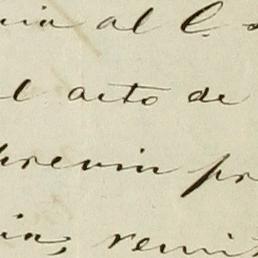 uia al C.
l acto de
previn pr
ia, remit